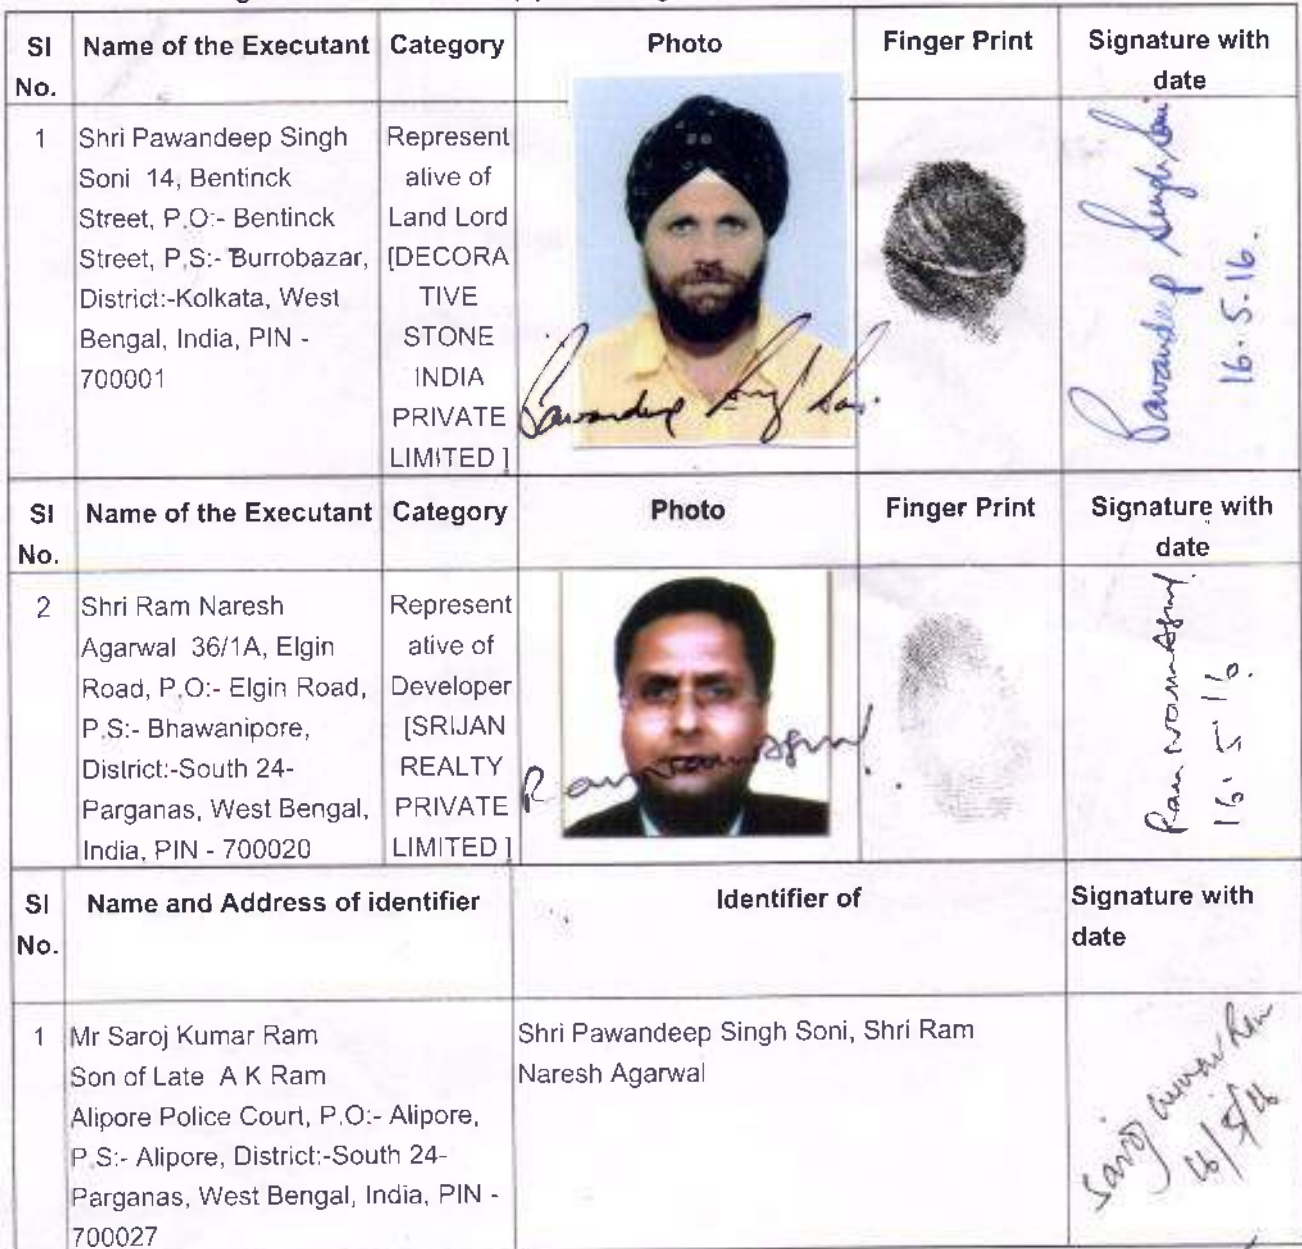 Sl No. Name of the Executant Category Photo Finger Print Signature with date
1
Shri Pawandeep Singh
Soni 14, Bentinck
Street, P.O:- Bentinck
Street, P.S:- Burrobazar,
District:-Kolkata, West
Bengal, India, PIN -
700001
Represent
ative of
Land Lord
[DECORA
TIVE
STONE
INDIA
PRIVATE
LIMITED ]
Pawandeep Singh Soni
Pawandeep Singh Soni
16.5.16.
Sl No. Name of the Executant Category Photo Finger Print Signature with date
2
Shri Ram Naresh
Agarwal 36/1A, Elgin
Road, P.O:- Elgin Road,
P.S:- Bhawanipore,
District:-South 24-
Parganas, West Bengal,
India, PIN - 700020
Represent
ative of
Developer
[SRIJAN
REALTY
PRIVATE
LIMITED ]
16.5.16.
Sl No. Name and Address of identifier Identifier of Signature with date
1
Mr Saroj Kumar Ram
Son of Late A K Ram
Alipore Police Court, P.O:- Alipore,
P.S:- Alipore, District:-South 24-
Parganas, West Bengal, India, PIN -
700027
Shri Pawandeep Singh Soni, Shri Ram
Naresh Agarwal
Saroj Kumar Ram
16/5/16